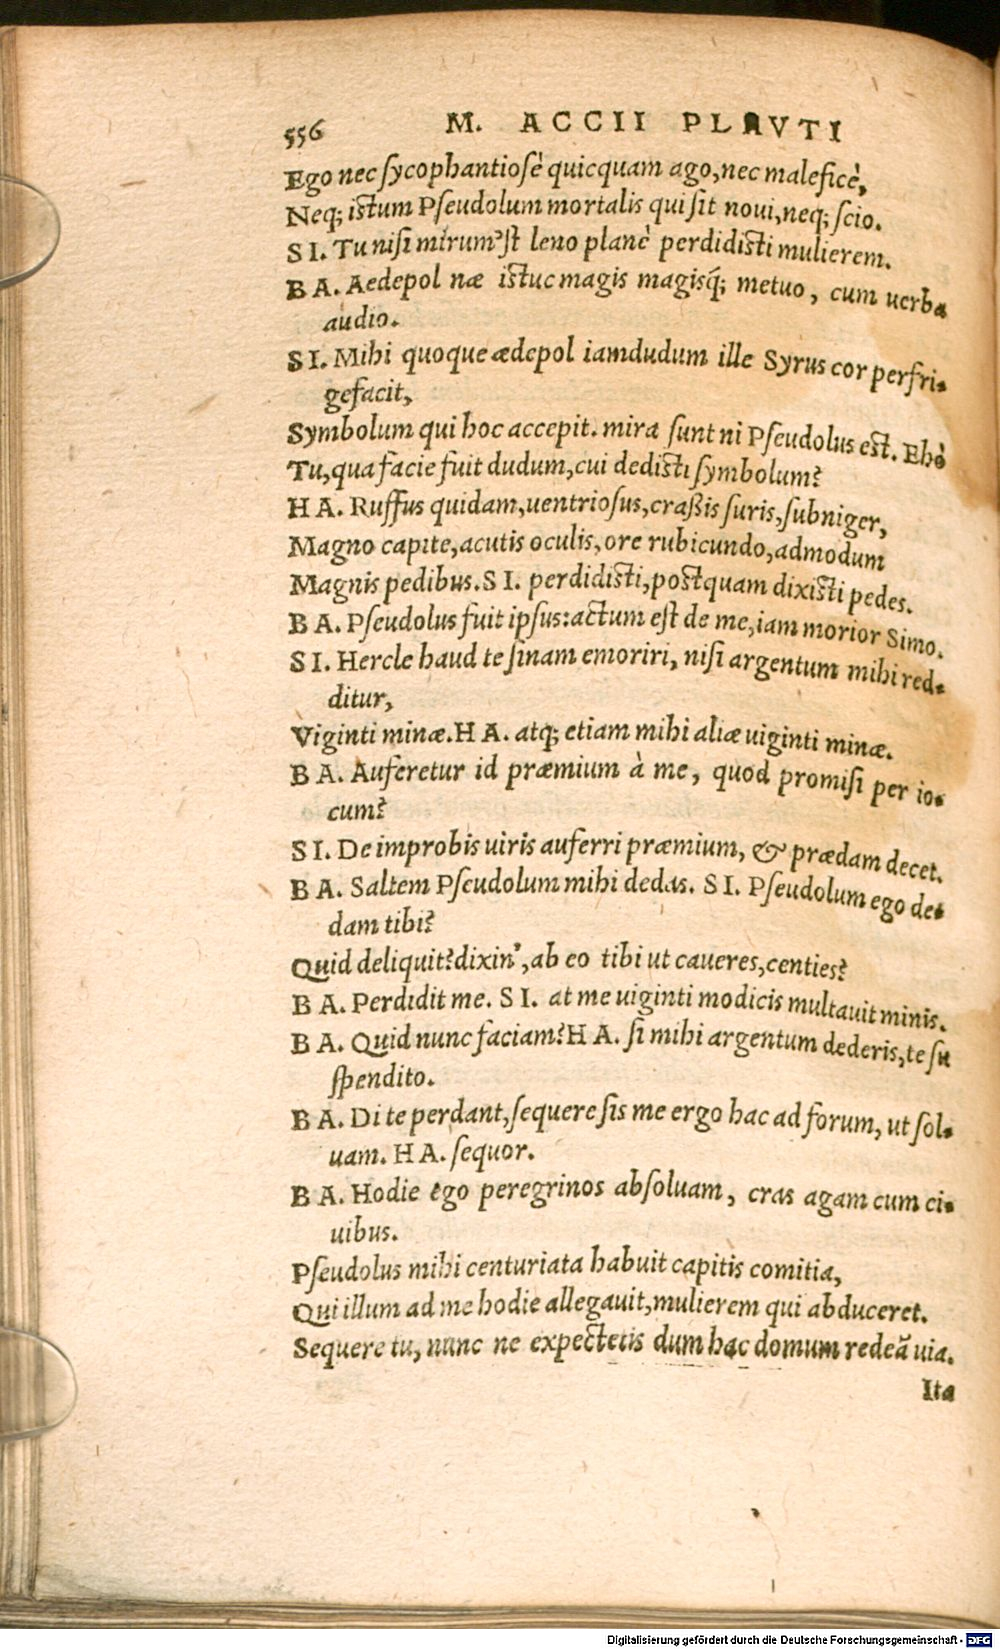 556 M. ACCII PLAVTI
Ego nec sycophantiosè quicquam ago, nec maleficè,
Neq; istum Pseudolum mortalis qui sit noui, neq; scio.
S I. Tu nisi mirum'st leno planè perdidisti mulierem.
B A. Aedepol næ istuc magis magisq́; metuo, cum uerba
audio.
S I. Mihi quoque ædepol iamdudum ille Syrus cor perfri-
gefacit,
Symbolum qui hoc accepit. mira sunt ni Pseudolus est. Ehò
Tu, qua facie fuit dudum, cui dedisti symbolum?
H A. Ruffus quidam, uentriosus, craßis suris, subniger,
Magno capite, acutis oculis, ore rubicundo, admodum
Magnis pedibus. S I. perdidisti, postquam dixisti pedes.
B A. Pseudolus fuit ipsus: actum est de me, iam morior Simo.
S I. Hercle haud te sinam emoriri, nisi argentum mihi red-
ditur,
Viginti minæ. H A. atq; etiam mihi aliæ uiginti minæ.
B A. Auferetur id præmium à me, quod promisi per io-
cum?
S I. De improbis uiris auferri præmium, & prædam decet.
B A. Saltem Pseudolum mihi dedas. S I. Pseudolum ego de-
dam tibi?
Quid deliquit? dixin', ab eo tibi ut caueres, centies?
B A. Perdidit me. S I. at me uiginti modicis multauit minis.
B A. Quid nunc faciam? H A. si mihi argentum dederis, te su
spendito.
B A. Di te perdant, sequere sis me ergo hac ad forum, ut sol-
uam. H A. sequor.
B A. Hodie ego peregrinos absoluam, cras agam cum ci-
uibus.
Pseudolus mihi centuriata habuit capitis comitia,
Qui illum ad me hodie allegauit, mulierem qui abduceret.
Sequere tu, nunc ne expectetis dum hac domum redeã uia.
Ita
Digitalisierung gefördert durch die Deutsche Forschungsgemeinschaft - DFG